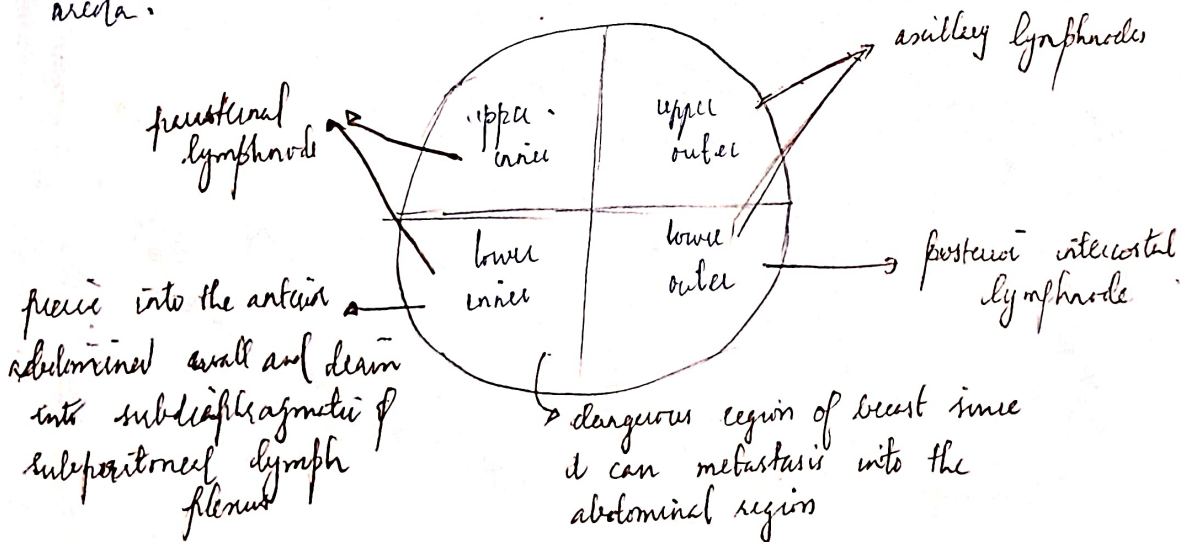 areola.
axillary lymphnodes
parasternal
lymphnode
upper
inner
upper
outer
lower
inner
lower
outer
posterior intercostal
lymphnode
pierce into the anterior
abdominal wall and drain
into subdiaphragmatic &
subperitoneal lymph
plexus
dangerous region of breast since
it can metastasis into the
abdominal region